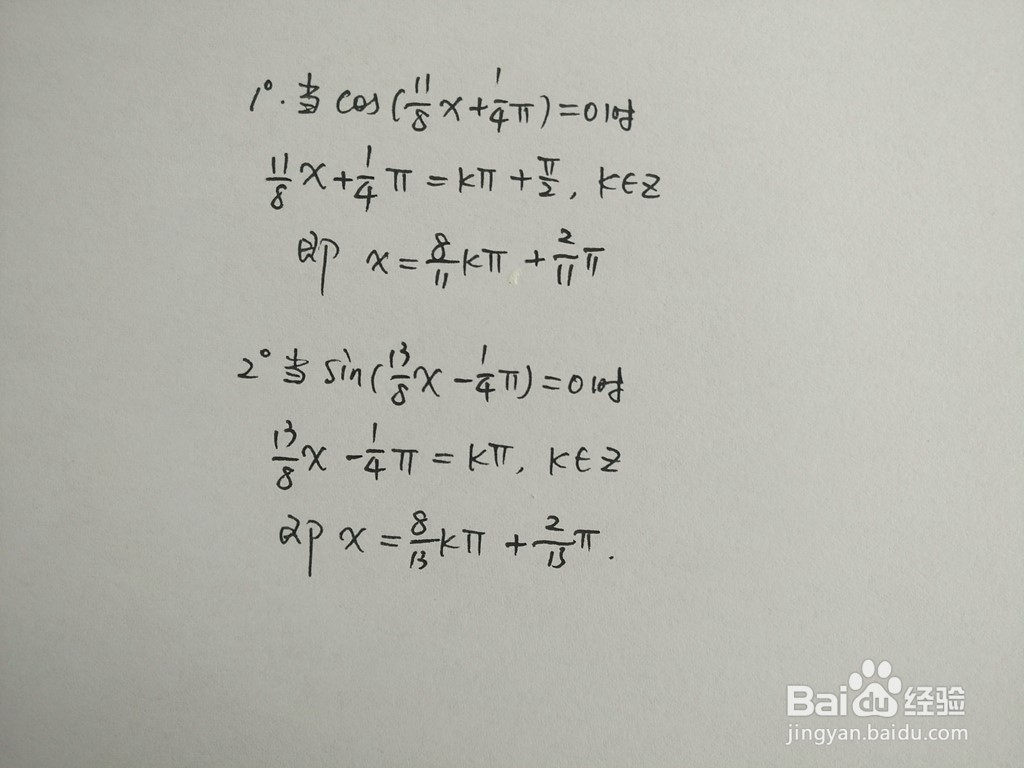 1°. 当 cos(11/8 x + 1/4 π) = 0 时
11/8 x + 1/4 π = kπ + π/2, k∈Z
即 x = 8/11 kπ + 2/11 π
2° 当 sin(13/8 x - 1/4 π) = 0 时
13/8 x - 1/4 π = kπ, k∈Z
即 x = 8/13 kπ + 2/13 π.
Bai du 经验
jingyan.baidu.com